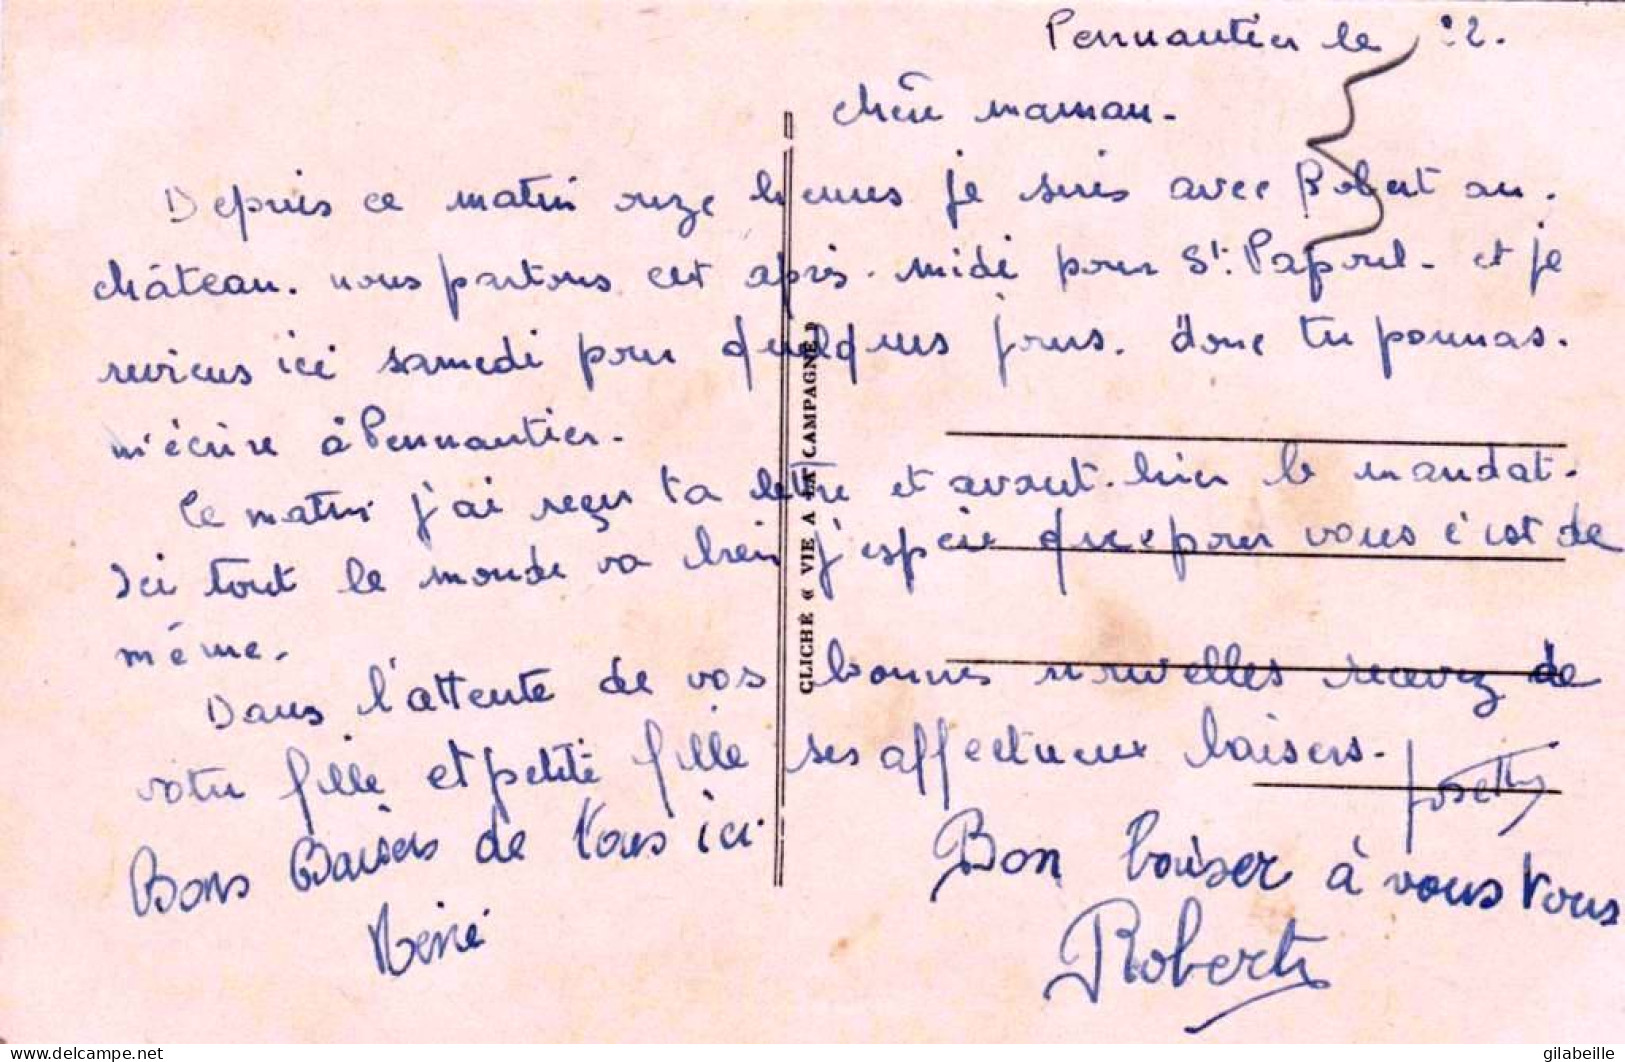 Pennautier le 22.
chère maman.
Depuis ce matin onze heures je suis avec Robert au.
château. nous partons cet après. midi pour St. Papoul. et je
reviens ici samedi pour quelques jours. donc tu pourras.
m'écrire à Pennautier.
Ce matin j'ai reçu ta lettre et avant-hier le mandat.
Ici tout le monde va bien j'espère que pour vous c'est de
même.
Dans l'attente de vos bonnes nouvelles recevez de
votre fille et petite fille ses affectueux baisers.
Josette
Bons Baisers de tous ici
Bon baiser à vous tous
Robert
CLICHÉ « VIE A LA CAMPAGNE »
delcampe.net
gilabeille